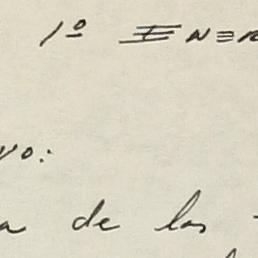 1º Ene
vo:
a de los